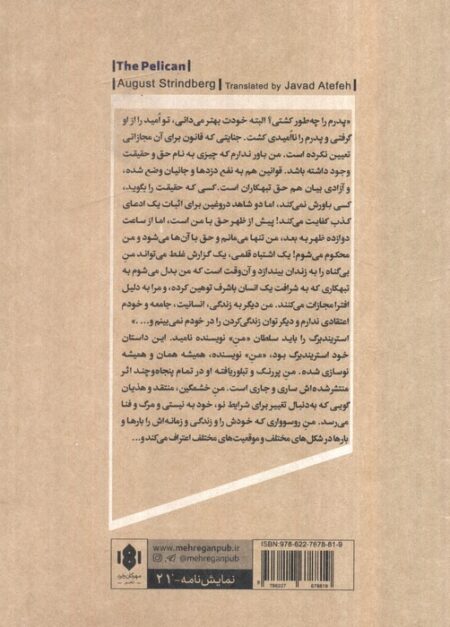 The Pelican
August Strindberg Translated by Javad Atefeh
«پدرم را چه‌طور کشتی؟ البته خودت بهتر می‌دانی، تو اُمید را از او
گرفتی و پدرم را نااُمیدی کشت. جنایتی که قانون برای آن مجازاتی
تعیین نکرده است. من باور ندارم که چیزی به نام حق و حقیقت
وجود داشته باشد. قوانین هم به نفع دزدها و جانیان وضع شده،
و آزادی بیان هم حق تبهکاران است. کسی که حقیقت را بگوید،
کسی باورش نمی‌کند، اما دو شاهد دروغین برای اثبات یک ادعای
کذب کفایت می‌کند! پیش از ظهر حق با من است، اما از ساعت
دوازده ظهر به بعد، من تنها می‌مانم و حق با آن‌ها می‌شود و من
محکوم می‌شوم! یک اشتباه قلمی، یک گزارش غلط می‌تواند من
بی‌گناه را به زندان بیندازد و آن‌وقت است که من بدل می‌شوم به
تبهکاری که به شرافت یک انسان باشرف توهین کرده، و مرا به دلیل
افترا مجازات می‌کنند. من دیگر به زندگی، انسانیت، جامعه و خودم
اعتقادی ندارم و دیگر توان زندگی‌کردن را در خودم نمی‌بینم و.... »
استریندبرگ را باید سلطان «منِ» نویسنده نامید. این داستان
خود استریندبرگ بود، «منِ» نویسنده، همیشه همان و همیشه
نوسازی شده. منِ پررنگ و تبلوریافته او در تمام پنجاه‌وچند اثر
منتشرشده‌اش ساری و جاری است. منِ خشمگین، منتقد و هذیان
گویی که به‌دنبال تغییر برای شرایط نو، خود به نیستی و مرگ و فنا
می‌رسد. منِ روسوواری که خودش را و زندگی و زمانه‌اش را بارها و
بارها در شکل‌های مختلف و موقعیت‌های مختلف اعتراف می‌کند و...
www.mehreganpub.ir
@mehreganpub
نمایش‌نامه-۲۱
ISBN: 978-622-7678-81-9
9 786227 678819